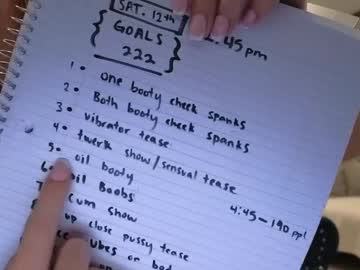 SAT. 12th
GOALS
222
:45pm
1. One booty cheek spanks
2. Both booty cheek spanks
3. vibrator tease
4. twerk show/sensual tease
5. oil booty
6. oil Boobs
cum show
up close pussy tease
4:45-190 ppl